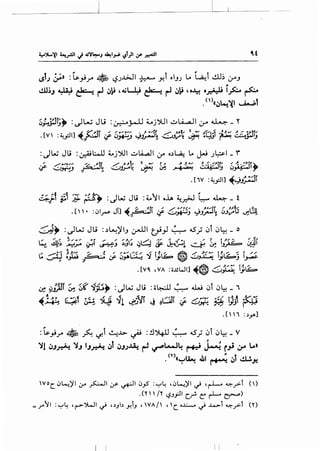 ٩٤
التعبير عن الرأي ضوابطه ومجالاته في الشريعة الإسلامية
ومن ذلك أيضا ما رواه أبو سعيد الخدري ﷺ مرفوعا: «من رأى
منكم منكرا فليغيره بيده، فإن لم يستطع فبلسانه، فإن لم يستطع فبقلبه وذلك
أضعف الإيمان»(١).
٢ - جعله من الصفات اللازمة للمؤمنين: قال تعالى: ﴿وَالْمُؤْمِنُونَ
وَالْمُؤْمِنَاتُ بَعْضُهُمْ أَوْلِيَاءُ بَعْضٍ يَأْمُرُونَ بِالْمَعْرُوفِ وَيَنْهَوْنَ عَنِ الْمُنْكَرِ﴾ [التوبة: ٧١].
٣ - اعتبر فعل ما يضاده من الصفات اللازمة للمنافقين: قال تعالى:
﴿الْمُنَافِقُونَ وَالْمُنَافِقَاتُ بَعْضُهُمْ مِنْ بَعْضٍ يَأْمُرُونَ بِالْمُنْكَرِ وَيَنْهَوْنَ عَنِ
الْمَعْرُوفِ﴾ [التوبة: ٦٧].
٤ - أن جعله سبب خيرية هذه الأمة: قال تعالى: ﴿كُنْتُمْ خَيْرَ أُمَّةٍ أُخْرِجَتْ
لِلنَّاسِ تَأْمُرُونَ بِالْمَعْرُوفِ وَتَنْهَوْنَ عَنِ الْمُنْكَرِ﴾ [آل عمران: ١١٠].
٥ - بيان أن تركه سبب للعن والإبعاد: ﴿لُعِنَ
الَّذِينَ كَفَرُوا مِنْ بَنِي إِسْرَائِيلَ عَلَى لِسَانِ دَاوُودَ وَعِيسَى ابْنِ مَرْيَمَ ذَلِكَ بِمَا
عَصَوْا وَكَانُوا يَعْتَدُونَ ۝ كَانُوا لَا يَتَنَاهَوْنَ عَنْ مُنْكَرٍ فَعَلُوهُ لَبِئْسَ مَا
كَانُوا يَفْعَلُونَ ۝﴾ [المائدة: ٧٨، ٧٩].
٦ - بيان أن فعله سبب للنجاة: قال تعالى: ﴿فَلَوْلَا كَانَ مِنَ الْقُرُونِ مِنْ
قَبْلِكُمْ أُولُو بَقِيَّةٍ يَنْهَوْنَ عَنِ الْفَسَادِ فِي الْأَرْضِ إِلَّا قَلِيلًا مِمَّنْ أَنْجَيْنَا مِنْهُمْ﴾
[هود: ١١٦].
٧ - بيان أن تركه سبب للهلاك: ففي حديث أبي بكر ﷺ مرفوعا:
«ما من قوم يعمل فيهم بالمعاصي ثم يقدرون أن يغيروا ولا يغيرون إلا
يوشك أن يعمهم الله بعقاب»(٢).
(١) أخرجه مسلم، في الإيمان، باب: كون النهي عن المنكر من الإيمان ح١٧٥
(صحيح مسلم مع شرح النووي ٢/٢١١).
(٢) أخرجه أحمد في مسنده ح١، ١/١٧٨، وأبو داود، في الملاحم، باب: الأمر